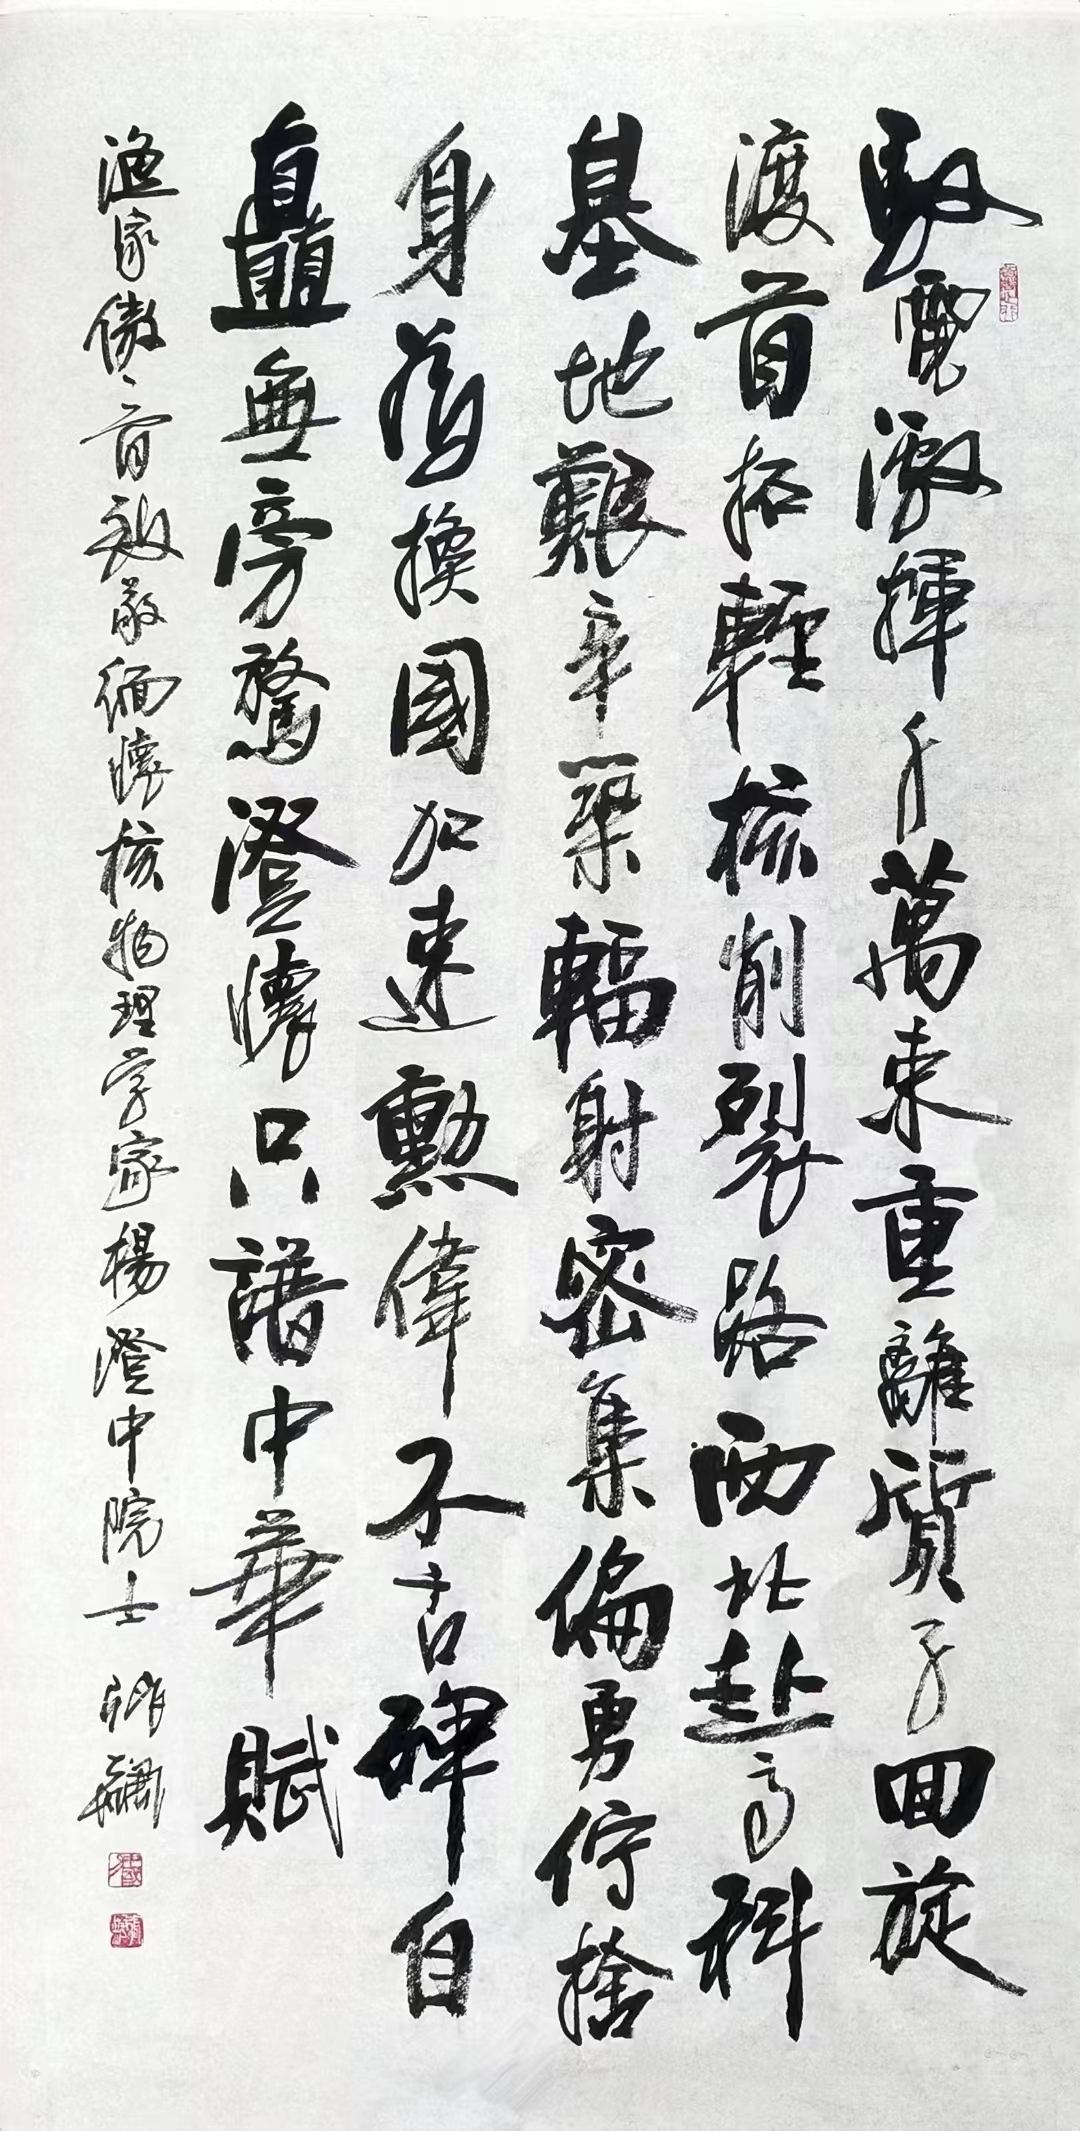 馭電激揮千萬束重離質子回旋
渡首拓輕核削裂路西北赴高科
基地艱辛築輻射密集偏勇佇捨
身為換國加速勳偉不言碑自
矗無旁騖澄懷只譜中華賦
漁家傲一首致敬緬懷核物理學家楊澄中院士